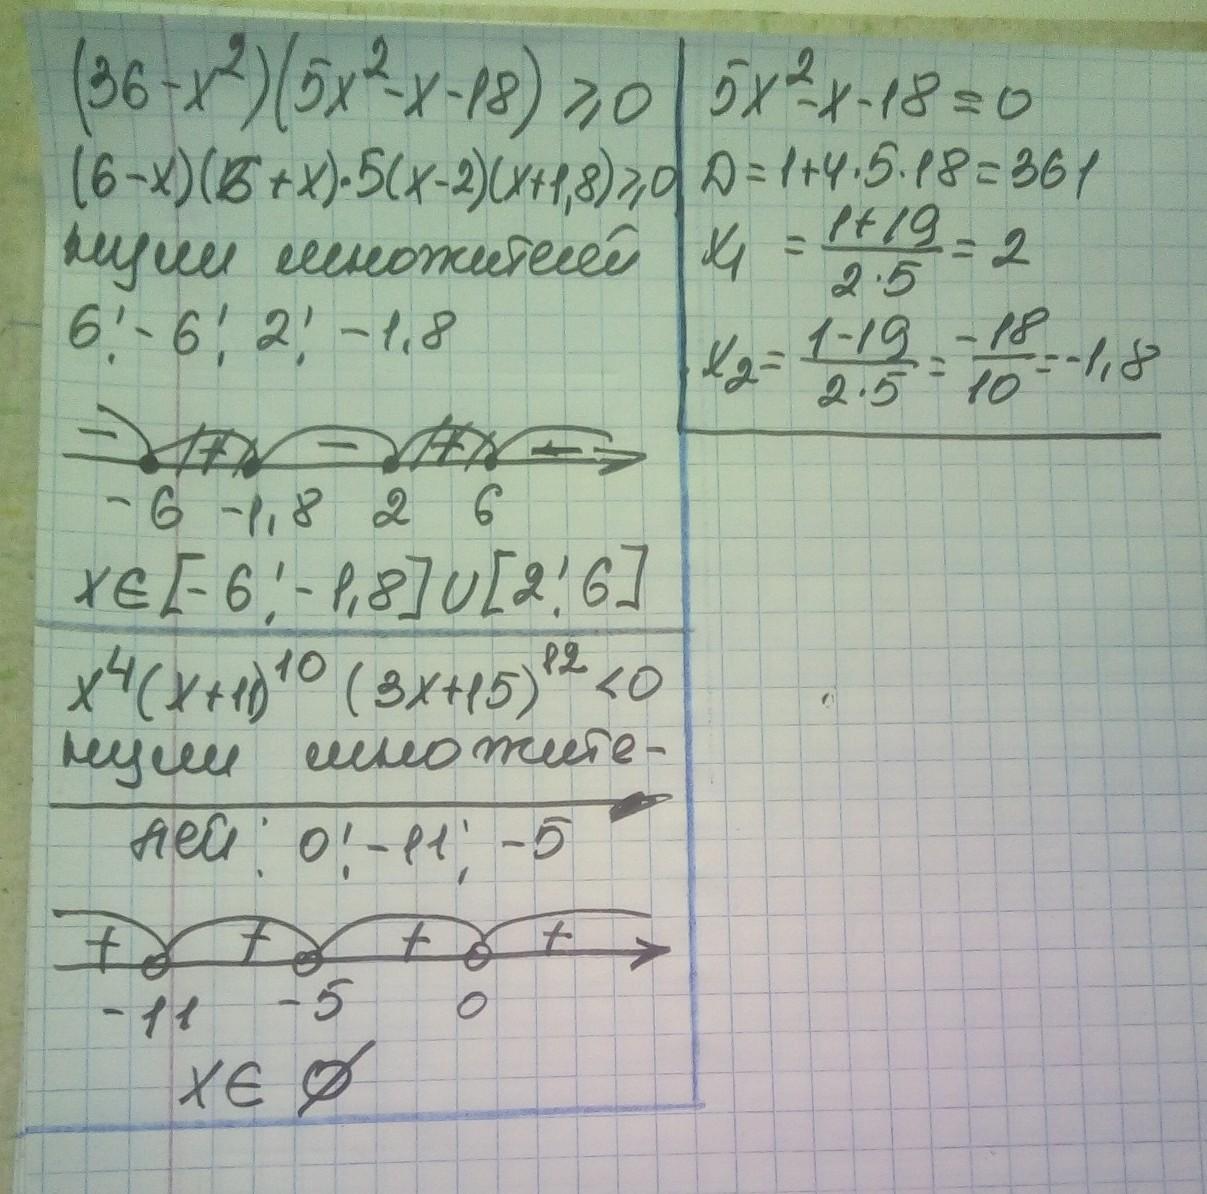 (36-x²)(5x²-x-18) ⩾ 0
(6-x)(6+x)·5(x-2)(x+1,8)⩾0
нули множителей
6; -6; 2; -1,8
- + - + -
-6 -1,8 2 6
x∈[-6; -1,8]∪[2; 6]
x⁴(x+11)¹⁰ (3x+15)¹² <0
нули множите-
лей: 0; -11; -5
+ + + +
-11 -5 0
x∈ ∅
5x²-x-18=0
D=1+4·5·18=361
x₁ = (1+19)/(2·5) = 2
x₂ = (1-19)/(2·5) = -18/10 = -1,8